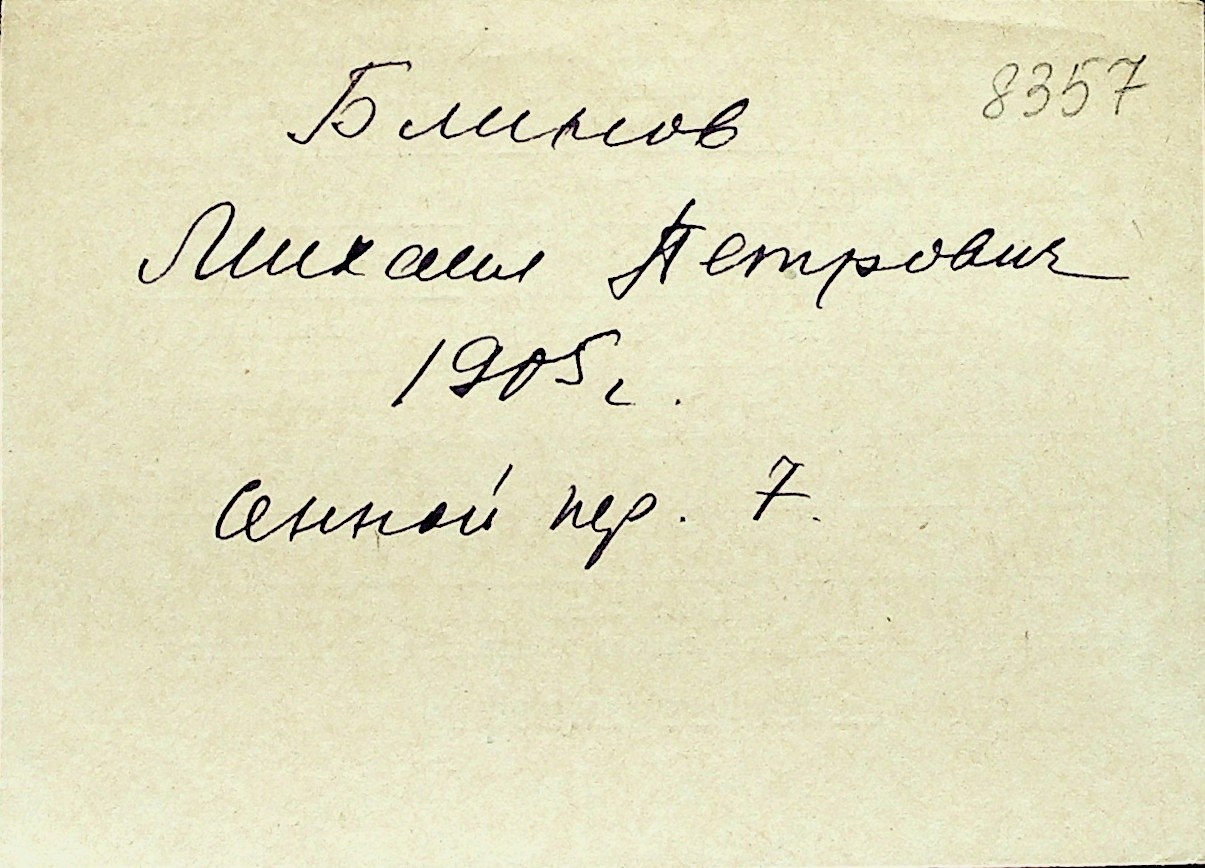 8357
Блинов
Михаил Петрович
1905 г.
Сенной пер. 7.